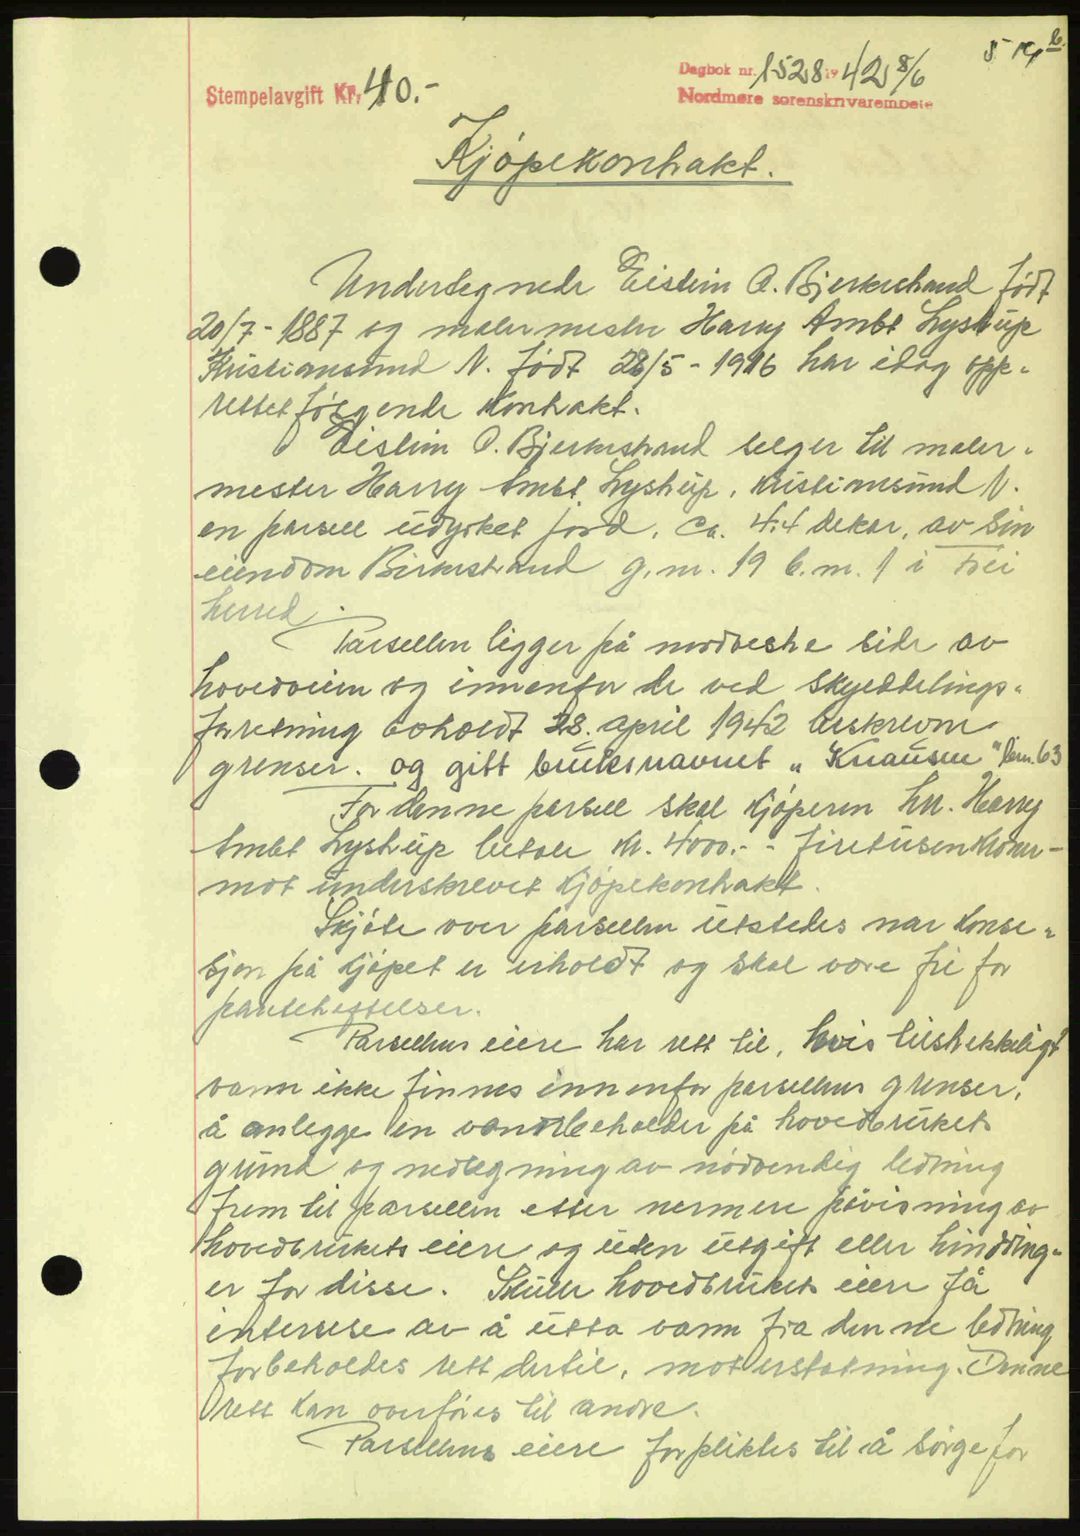 5 kr
Stempelavgift Kr. 40.-
Dagbok nr. 1528 19 42 8/6
Nordmøre sorenskrivarembete
Kjøpekontrakt.
Undertegnede Eistein O. Bjerkestrand født
20/7 - 1887 og malermester Harry Ambt Lystrup
Kristiansund N. født 28/5 - 1916 har idag opp-
rettet følgende kontrakt.
Eistein O. Bjerkestrand selger til maler-
mester Harry Ambt Lystrup, Kristiansund N.
en parsell udyrket jord, ca. 4.4 dekar, av sin
eiendom Birkestrand g.nr. 19 b.nr. 1 i Frei
herred.
Parsellen ligger på nordvestre side av
hovedveien og innenfor de ved skylddelings-
forretning avholdt 28. april 1942 beskrevne
grenser. og gitt bruksnavnet „Knausen" b.nr. 63
For denne parsell skal kjøperen hr. Harry
Ambt Lystrup betale kr. 4000.- - firetusenkroner -
mot underskrevet kjøpekontrakt.
Skjøte over parsellen utstedes når konse-
sjon på kjøpet er erholdt og skal være fri for
panteheftelser.
Parsellens eiere har rett til, hvis tilstrekkeligt
vann ikke finnes innenfor parsellens grenser,
å anlegge en vannbeholder på hovedbrukets
grunn og nedlegning av nødvendig ledning
frem til parsellen etter nermere påvisning av
hovedbrukets eiere og uten utgift eller hindring-
er for disse. Skulle hovedbrukets eiere få
interesse av å utta vann fra denne ledning
forbeholdes rett dertil, mot erstatning. Denne
rett kan overføres til andre.
Parsellens eiere forpliktes til å sørge for